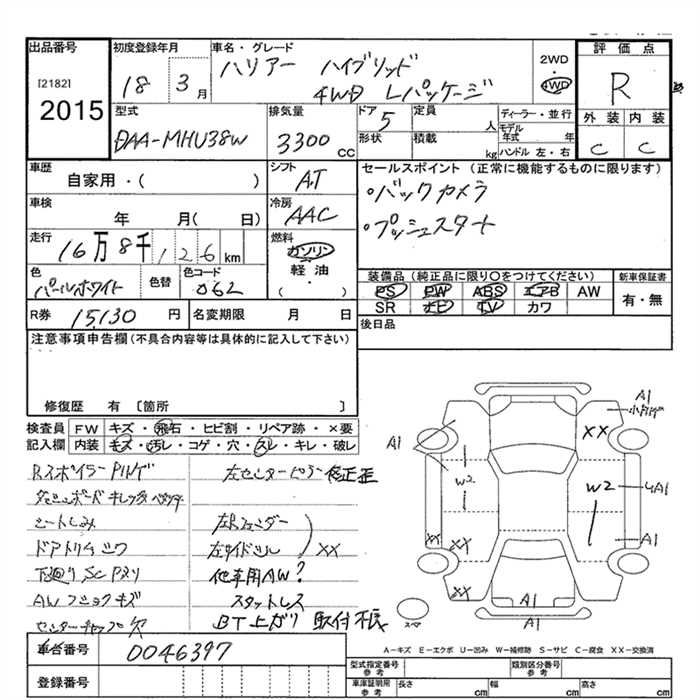 出品番号
[2182]
2015
初度登録年月
18 3月
車名・グレード
ハリアー ハイブリッド
4WD Lパッケージ
2WD
4WD
評価点
R
外装 内装
C C
型式
DAA-MHU38W
排気量
3300 CC
ドア 5
形状
定員 人
積載 kg
ディーラー・並行
モデル年式 年
ハンドル 左・右
車歴
自家用・( )
シフト
AT
セールスポイント (正常に機能するものに限ります)
・バックカメラ
・プッシュスタート
車検
年 月( 日)
冷房
AAC
走行
16万8千126km
燃料
ガソリン
軽油
( ・ )
色
パールホワイト
色替
色コード
062
装備品 (純正品に限り○をつけてください)
PS PW ABS エアB AW
SR ナビ TV カワ
新車保証書
有・無
R券 15,130円
名変期限 月 日
後日品
注意事項申告欄(不具合内容等は具体的に記入して下さい)
修復歴 有 [箇所 ]
検査員記入欄
FW キズ・飛石・ヒビ割・リペア跡・×要
内装 キズ・汚レ・コゲ・穴・スレ・キレ・破レ
左センターピラー修正歪
シートしみ
ドアトリム
下廻り
他車用AW?
AW
キズ
スタットレス
センターキャップ欠
取付不良
XX
A1
A1
XX
W2
W2
4A1
A1
XX
XX
XX
A1
A1
スペア
A-キズ E-エクボ U-凹み W-補修跡 S-サビ C-腐食 XX-交換済
車台番号 0046397
登録番号
型式指定番号 参考
類別区分番号 参考
車庫証明用 参考
長さ cm 幅 cm 高さ cm